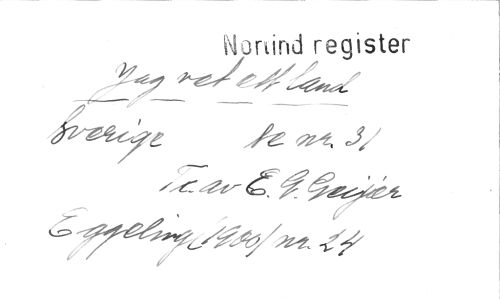 Norlind register
Jag vet ett land
Sverige Se nr. 31
Tr. av E. G. Geijer
Eggeling (1900) nr. 24